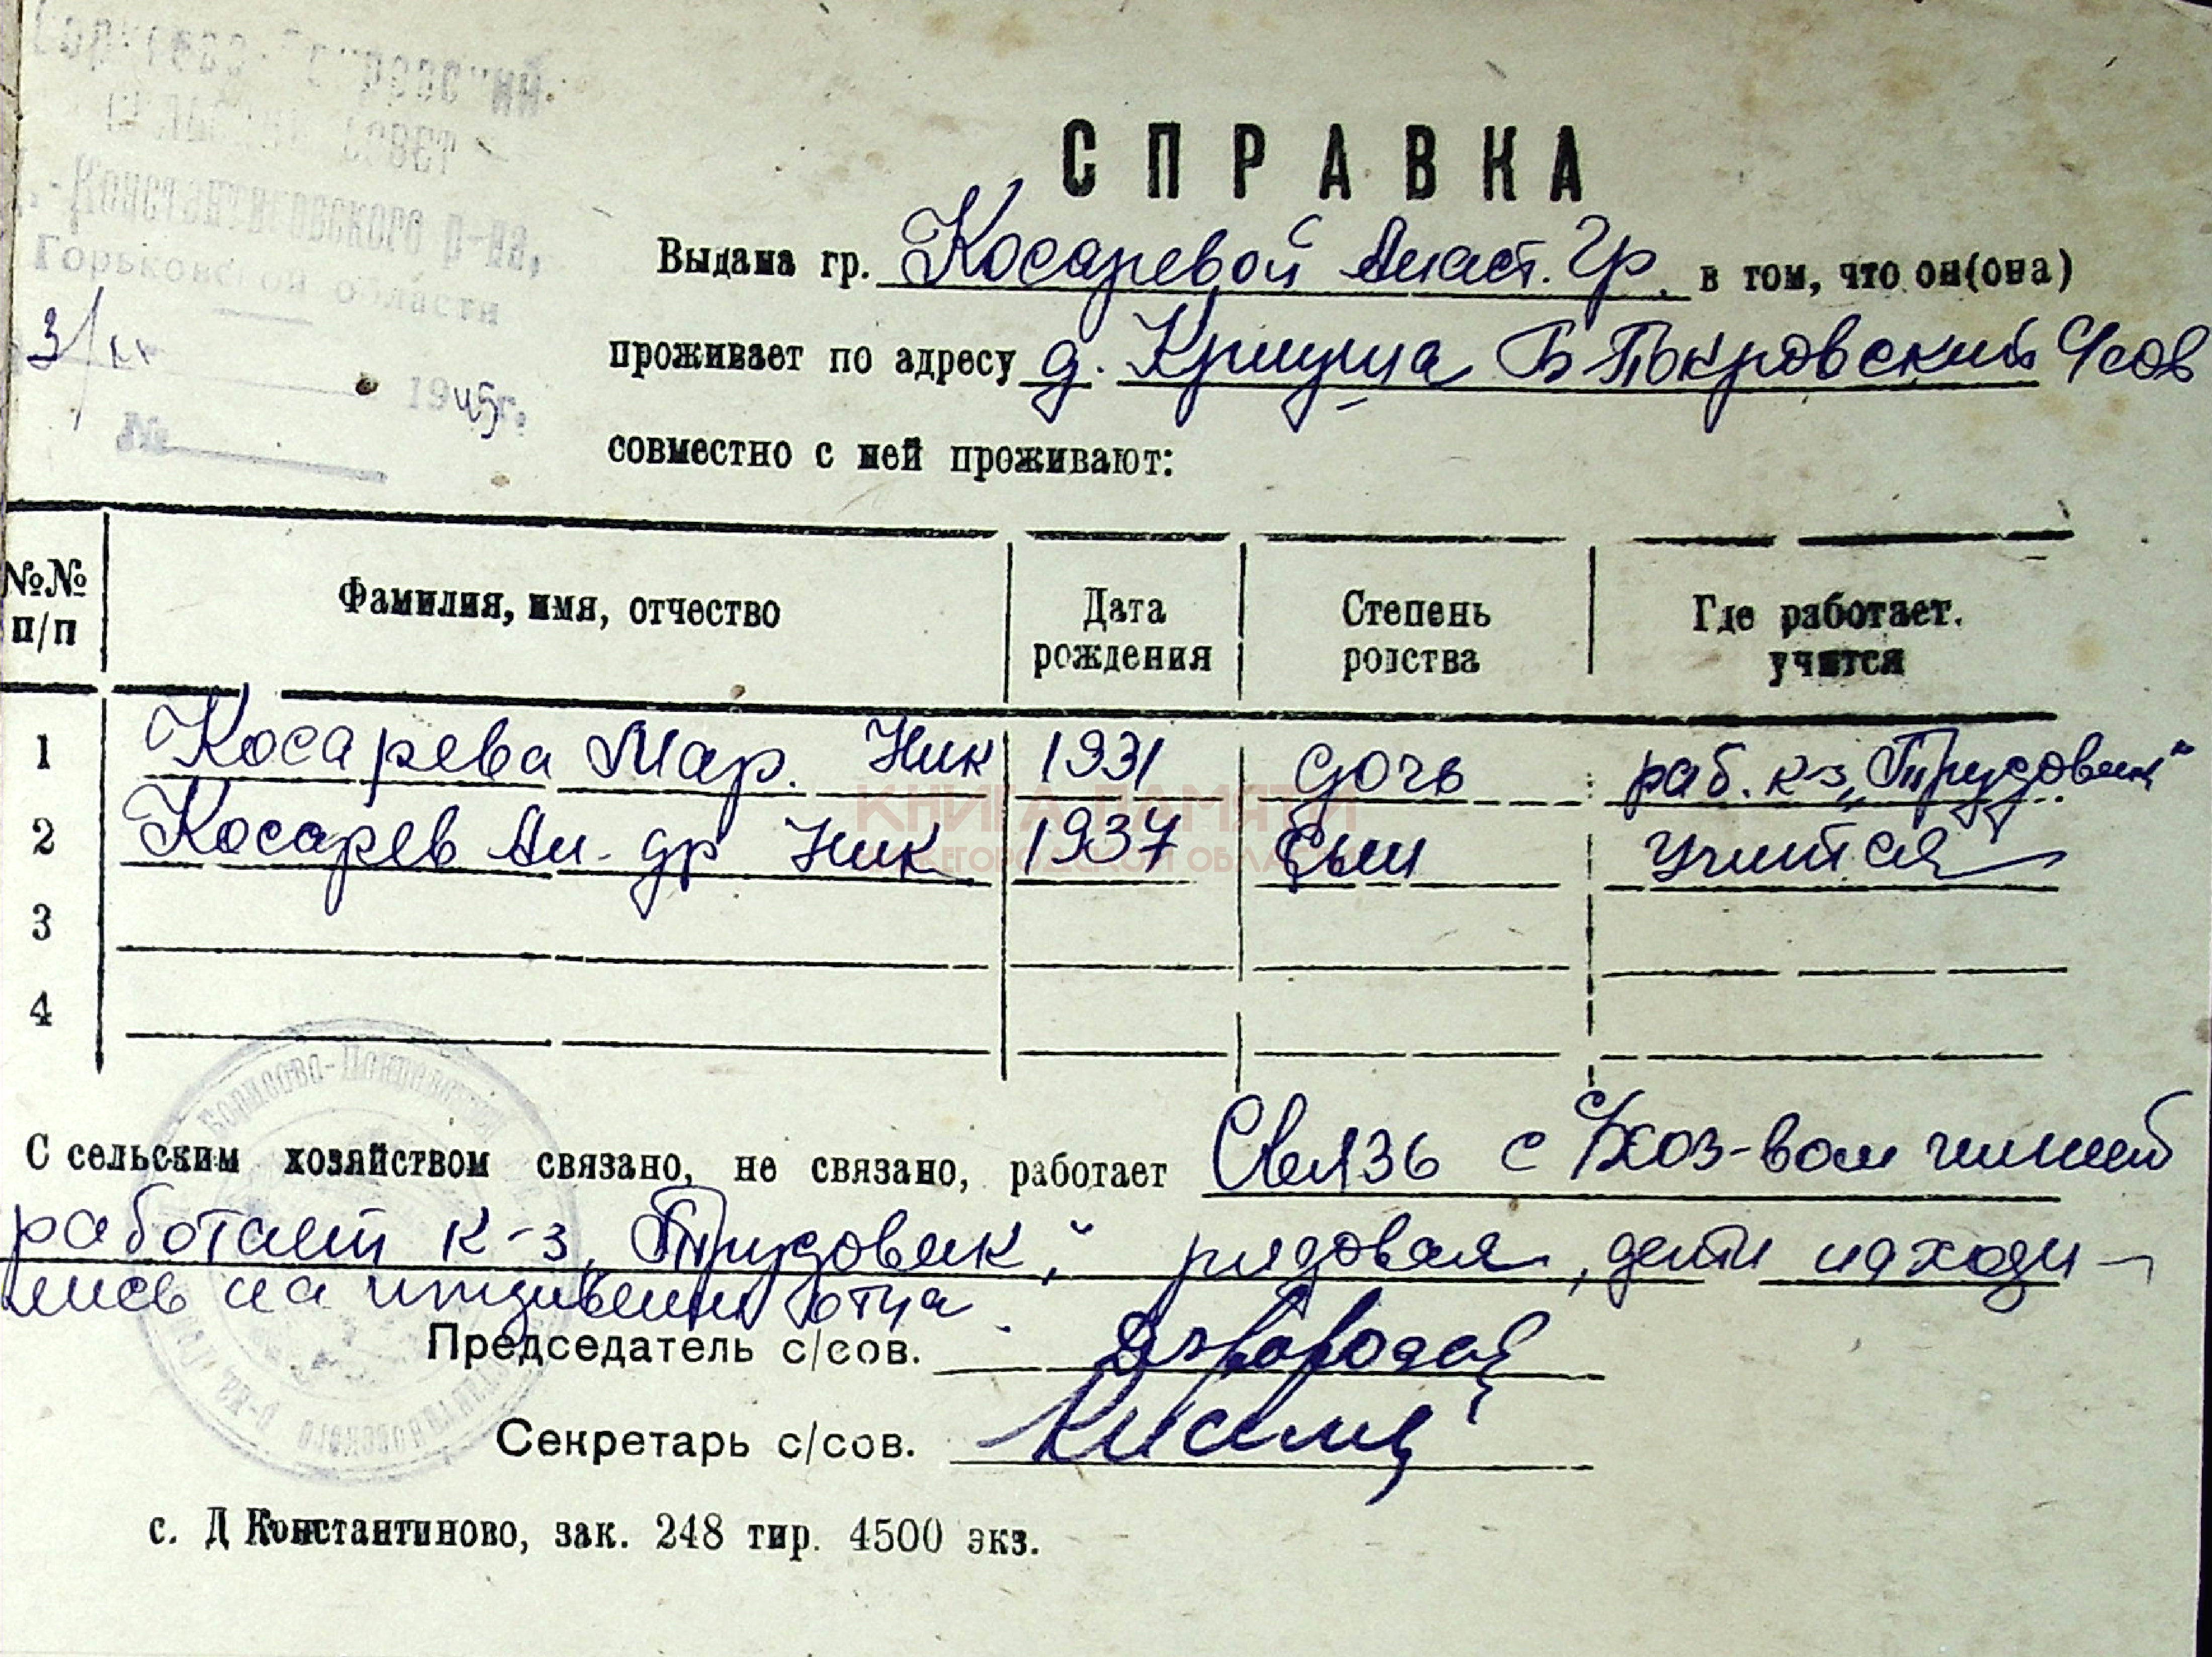 СЕЛЬСКИЙ СОВЕТ
Константиновского р-на,
Горьковской области
3/ 1945г.
№
СПРАВКА
Выдана гр. Косаревой Анаст. Гр. в том, что он(она)
проживает по адресу д. Криуша Б-Покровский с/сов
совместно с ней проживают:
№№ п/п Фамилия, имя, отчество Дата рождения Степень родства Где работает. учится
1 Косарева Мар. Ник 1931 дочь раб. к-з „Трудовик"
2 Косарев Ан-др Ник 1937 Сын Учится
3
4
КНИГА ПАМЯТИ
НИЖЕГОРОДСКОЙ ОБЛАСТИ
Борисово-Покровский
С сельским хозяйством связано, не связано, работает Связь с с/хоз-вом имеет
работает к-з „Трудовик", рядовая, дети находи-
лись на иждивении отца
Председатель с/сов.
Секретарь с/сов.
с. Д Константиново, зак. 248 тир. 4500 экз.